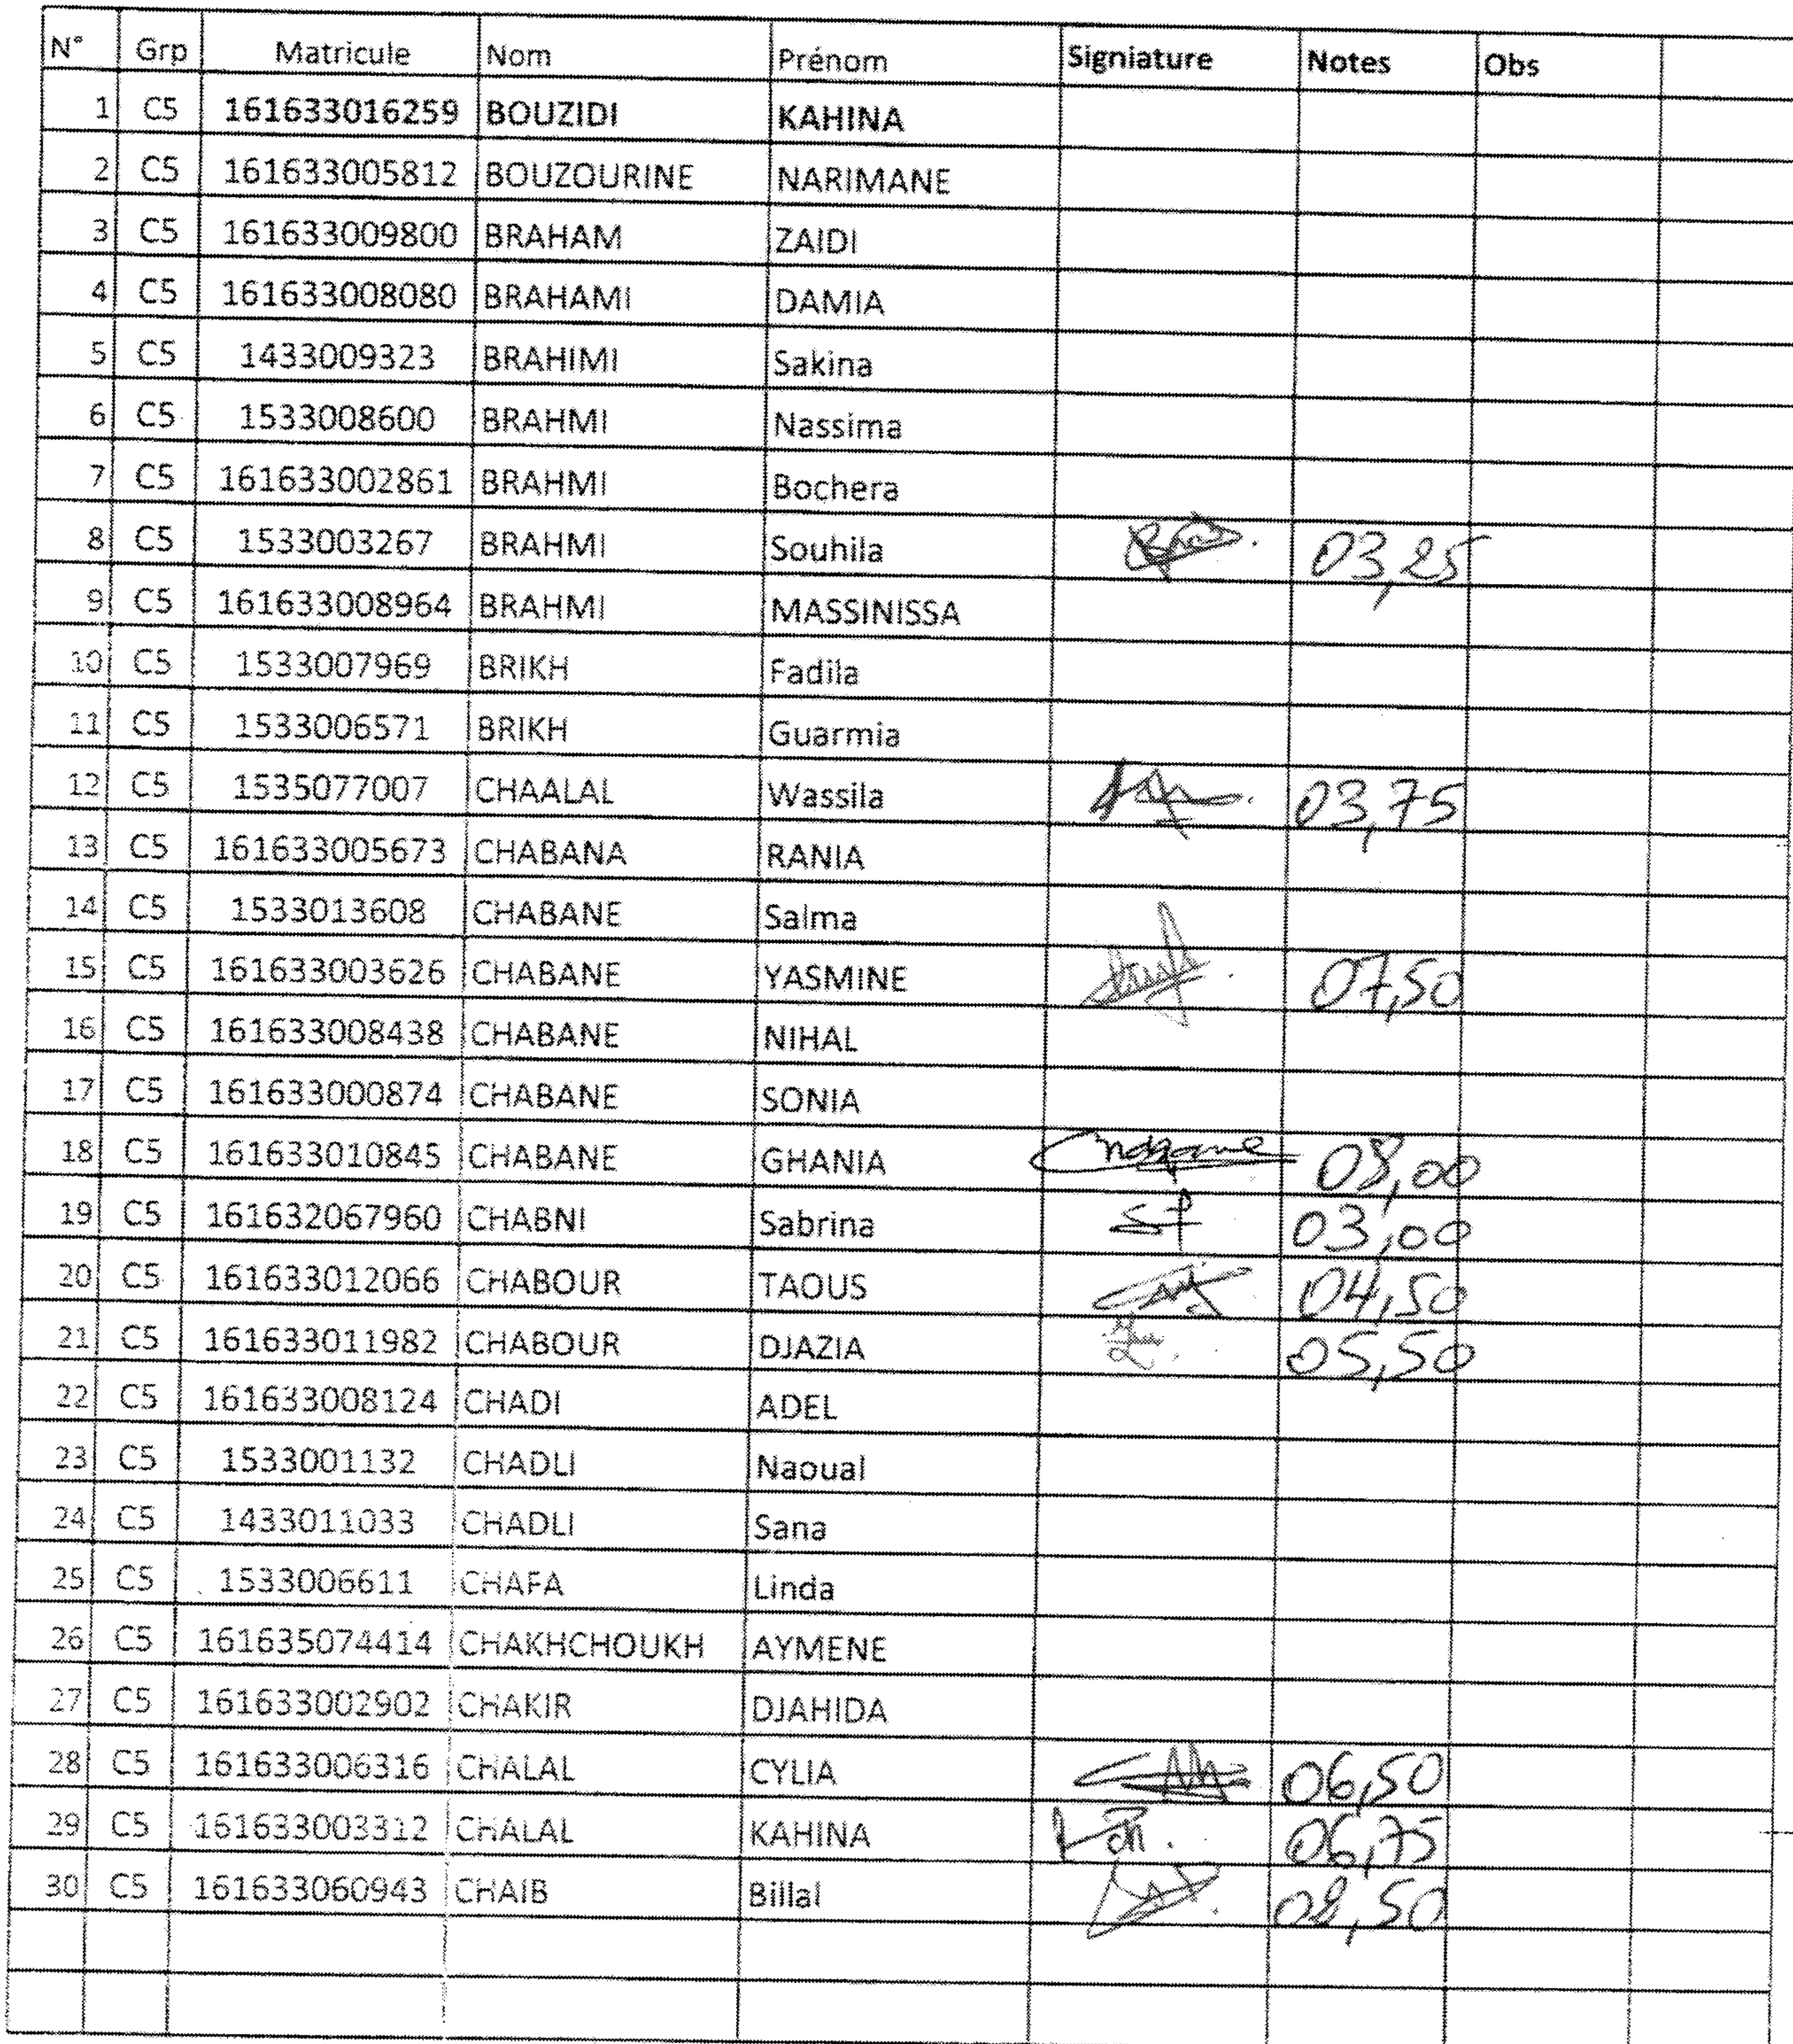 N° Grp Matricule Nom Prénom Signiature Notes Obs
1 C5 161633016259 BOUZIDI KAHINA
2 C5 161633005812 BOUZOURINE NARIMANE
3 C5 161633009800 BRAHAM ZAIDI
4 C5 161633008080 BRAHAMI DAMIA
5 C5 1433009323 BRAHIMI Sakina
6 C5 1533008600 BRAHMI Nassima
7 C5 161633002861 BRAHMI Bochera
8 C5 1533003267 BRAHMI Souhila 03,25
9 C5 161633008964 BRAHMI MASSINISSA
10 C5 1533007969 BRIKH Fadila
11 C5 1533006571 BRIKH Guarmia
12 C5 1535077007 CHAALAL Wassila 03,75
13 C5 161633005673 CHABANA RANIA
14 C5 1533013608 CHABANE Salma
15 C5 161633003626 CHABANE YASMINE 07,50
16 C5 161633008438 CHABANE NIHAL
17 C5 161633000874 CHABANE SONIA
18 C5 161633010845 CHABANE GHANIA 08,00
19 C5 161632067960 CHABNI Sabrina 03,00
20 C5 161633012066 CHABOUR TAOUS 04,50
21 C5 161633011982 CHABOUR DJAZIA 05,50
22 C5 161633008124 CHADI ADEL
23 C5 1533001132 CHADLI Naoual
24 C5 1433011033 CHADLI Sana
25 C5 1533006611 CHAFA Linda
26 C5 161635074414 CHAKHCHOUKH AYMENE
27 C5 161633002902 CHAKIR DJAHIDA
28 C5 161633006316 CHALAL CYLIA 06,50
29 C5 161633003312 CHALAL KAHINA 06,75
30 C5 161633060943 CHAIB Billal